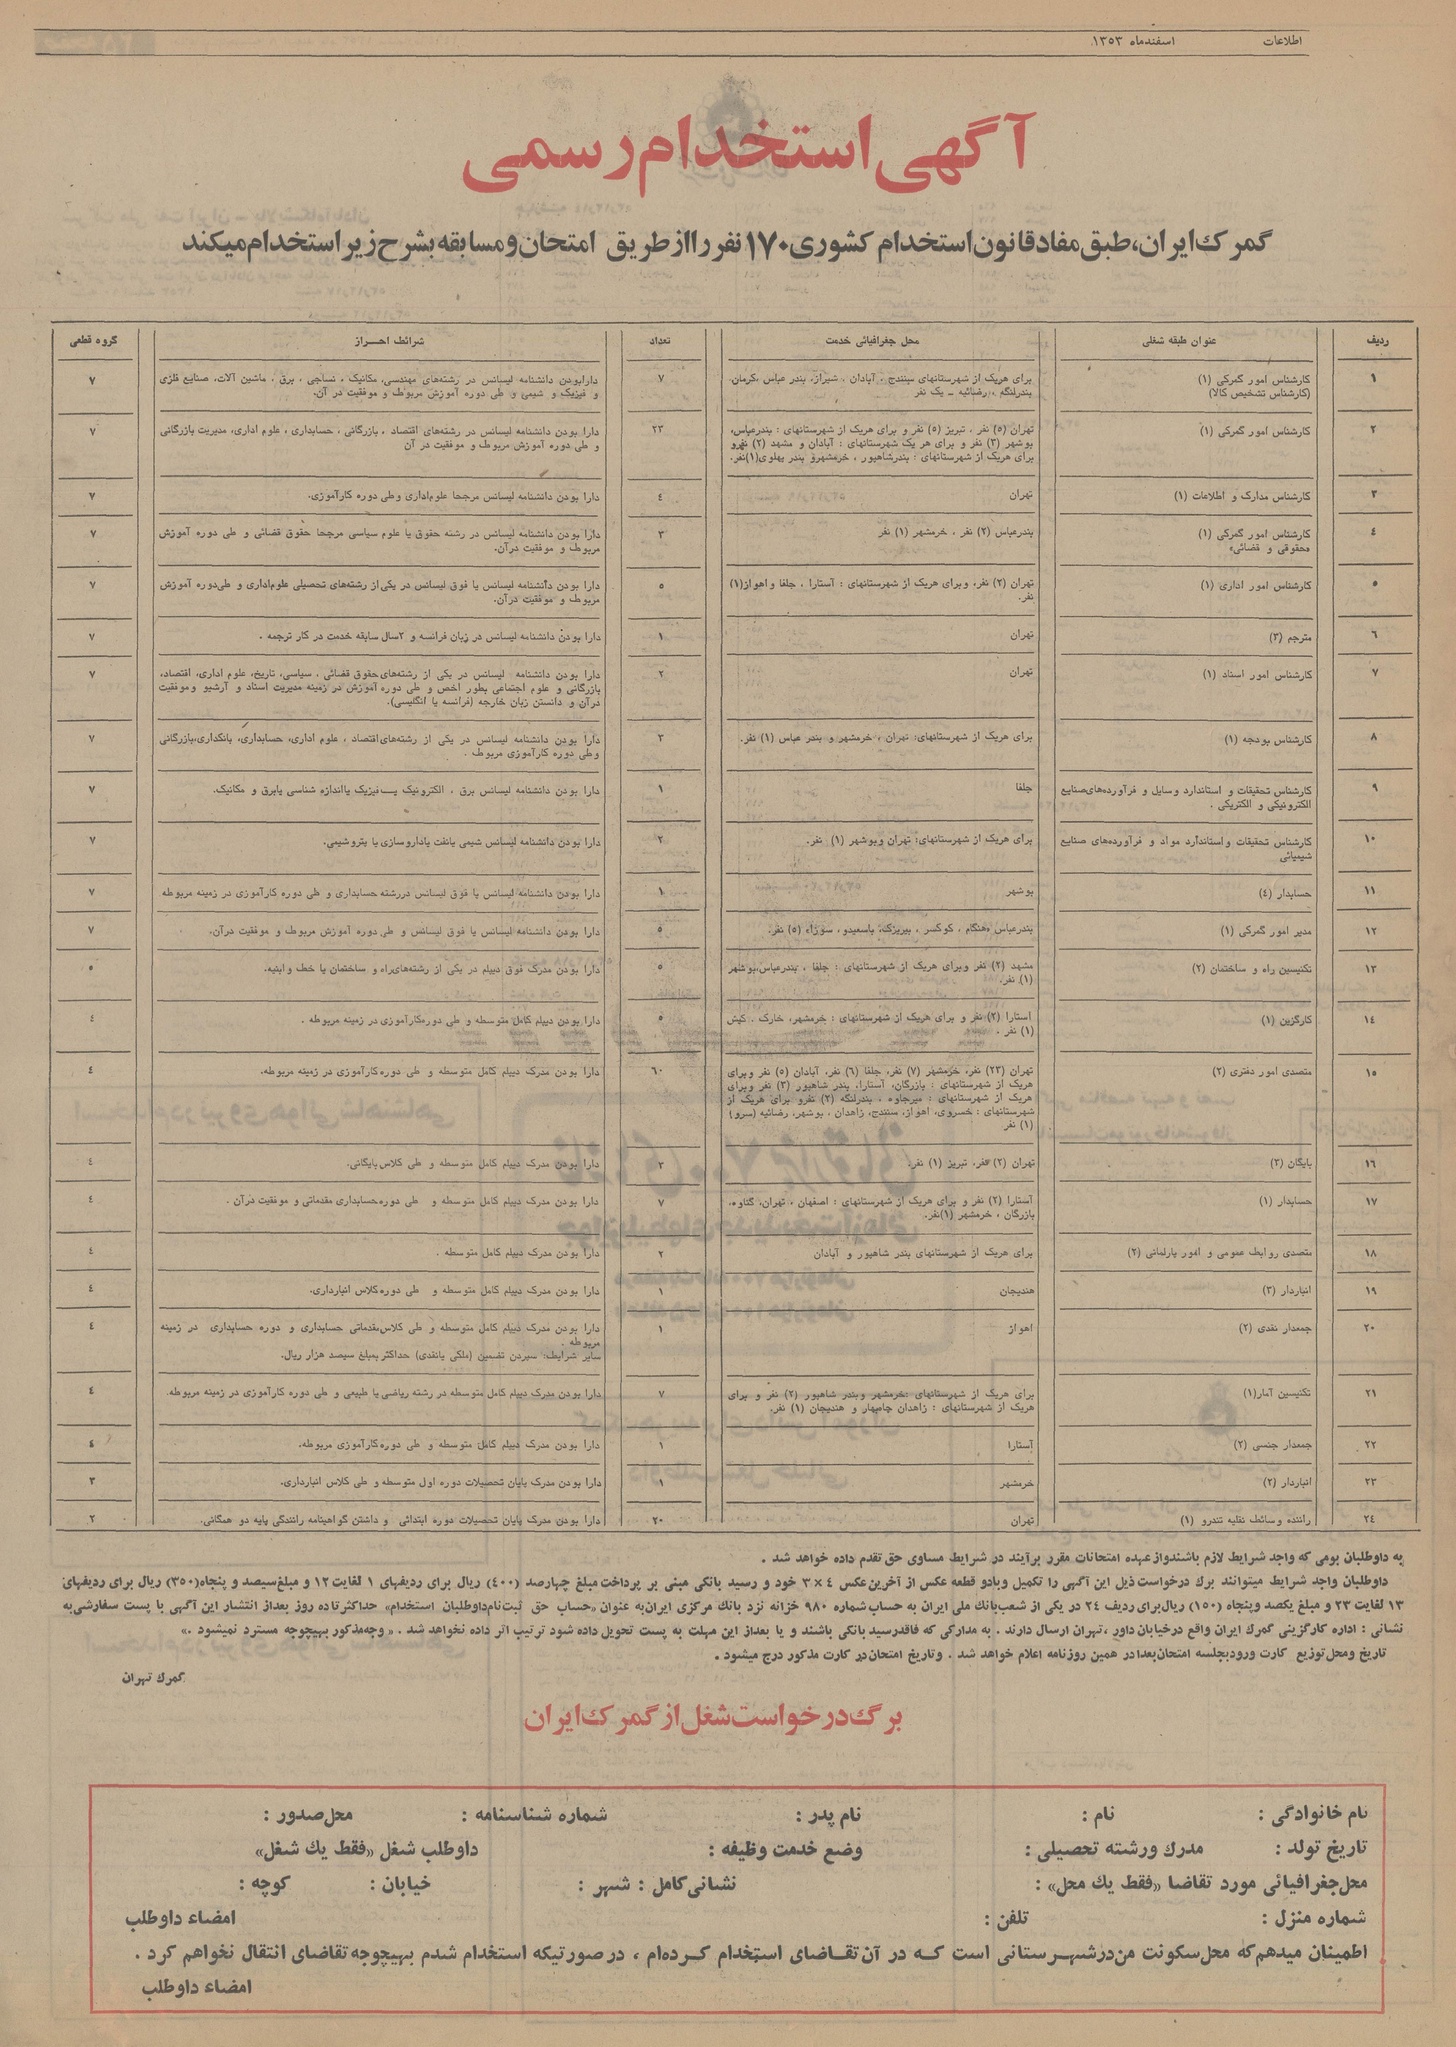 اطلاعات
اسفندماه ۱۳۵۳
آگهی استخدام رسمی
گمرک ایران، طبق مفاد قانون استخدام کشوری ۱۷۰ نفر را از طریق امتحان و مسابقه بشرح زیر استخدام میکند
ردیف عنوان طبقه شغلی محل جغرافیائی خدمت تعداد شرائط احراز گروه قطعی
۱ کارشناس امور گمرکی (۱) برای هریک از شهرستانهای سنندج، آبادان، شیراز، بندر عباس، کرمان، ۷ دارابودن دانشنامه لیسانس در رشته‌های مهندسی، مکانیک، نساجی، برق، ماشین آلات، صنایع فلزی ۷
(کارشناس تشخیص کالا) بندرلنگه، رضائیه ـ یک نفر و فیزیک و شیمی و طی دوره آموزش مربوط و موفقیت در آن.
۲ کارشناس امور گمرکی (۱) تهران (۵) نفر، تبریز (۵) نفر و برای هریک از شهرستانهای: بندرعباس، ۲۳ دارا بودن دانشنامه لیسانس در رشته‌های اقتصاد، بازرگانی، حسابداری، علوم اداری، مدیریت بازرگانی ۷
بوشهر (۳) نفر و برای هر یک شهرستانهای: آبادان و مشهد (۲) نفرو و طی دوره آموزش مربوط و موفقیت در آن
برای هریک از شهرستانهای: بندرشاهپور، خرمشهرو بندر پهلوی(۱)نفر.
۳ کارشناس مدارک و اطلاعات (۱) تهران ٤ دارا بودن دانشنامه لیسانس مرجحا علوم‌اداری وطی دوره کارآموزی. ۷
٤ کارشناس امور گمرکی (۱) بندرعباس (۲) نفر، خرمشهر (۱) نفر ۳ دارا بودن دانشنامه لیسانس در رشته حقوق یا علوم سیاسی مرجحا حقوق قضائی و طی دوره آموزش ۷
«حقوقی و قضائی» مربوط و موفقیت درآن.
۵ کارشناس امور اداری (۱) تهران (۲) نفر، وبرای هریک از شهرستانهای: آستارا، جلفا واهواز(۱) ۵ دارا بودن دانشنامه لیسانس یا فوق لیسانس در یکی‌از رشته‌های تحصیلی علوم‌اداری و طی‌دوره آموزش ۷
نفر. مربوط و موفقیت درآن.
٦ مترجم (۳) تهران ۱ دارا بودن دانشنامه لیسانس در زبان فرانسه و ۲سال سابقه خدمت در کار ترجمه. ۷
۷ کارشناس امور اسناد (۱) تهران ۲ دارا بودن دانشنامه لیسانس در یکی از رشته‌های حقوق قضائی، سیاسی، تاریخ، علوم اداری، اقتصاد، ۷
بازرگانی و علوم اجتماعی بطور اخص و طی دوره آموزش در زمینه مدیریت اسناد و آرشیو وموفقیت
درآن و دانستن زبان خارجه (فرانسه یا انگلیسی).
۸ کارشناس بودجه (۱) برای هریک از شهرستانهای: تهران، خرمشهر و بندر عباس (۱) نفر. ۳ دارا بودن دانشنامه لیسانس در یکی از رشته‌های‌اقتصاد، علوم اداری، حسابداری، بانکداری،بازرگانی ۷
وطی دوره کارآموزی مربوط.
۹ کارشناس تحقیقات و استاندارد وسایل و فرآورده‌های‌صنایع جلفا ۱ دارا بودن دانشنامه لیسانس برق، الکترونیک یـــافیزیک یااندازه شناسی یابرق و مکانیک. ۷
الکترونیکی و الکتریکی.
۱۰ کارشناس تحقیقات واستاندارد مواد و فرآورده‌های صنایع برای هریک از شهرستانهای: تهران وبوشهر (۱) نفر. ۲ دارا بودن دانشنامه لیسانس شیمی یانفت یاداروسازی یا پتروشیمی. ۷
شیمیائی
۱۱ حسابدار (٤) بوشهر ۱ دارا بودن دانشنامه لیسانس یا فوق لیسانس دررشته حسابداری و طی دوره کارآموزی در زمینه مربوطه ۷
۱۲ مدیر امور گمرکی (۱) بندرعباس هنگام، کوکسر، باسعیدو، (۵) نفر. ۵ دارا بودن دانشنامه لیسانس یا فوق لیسانس و طی دوره آموزش مربوط و موفقیت درآن. ۷
۱۳ تکنیسین راه و ساختمان (۲) مشهد (۲) نفر وبرای هریک از شهرستانهای: جلفا، بندرعباس،بوشهر ۵ دارا بودن مدرک فوق دیپلم در یکی از رشته‌های‌راه و ساختمان یا خط وابنیه. ۵
(۱) نفر.
۱٤ کارگزین (۱) آستارا (۲) نفر و برای هریک از شهرستانهای: خرمشهر، خارک، کیش ۵ دارا بودن دیپلم کامل متوسطه و طی دوره‌کارآموزی در زمینه مربوطه. ٤
(۱) نفر.
۱۵ متصدی امور دفتری (۲) تهران (۲۳) نفر، خرمشهر (۷) نفر، جلفا (٦) نفر، آبادان (۵) نفر وبرای ٦۰ دارا بودن مدرک دیپلم کامل متوسطه و طی دوره کارآموزی در زمینه مربوطه. ٤
هریک از شهرستانهای: بازرگان، آستارا، بندر شاهپور (۳) نفر وبرای
هریک از شهرستانهای: میرجاوه، بندرلنگه (۲) نفرو برای هریک از
شهرستانهای: خسروی، اهواز، سنندج، زاهدان، بوشهر، رضائیه (سرو)
(۱) نفر
۱٦ بایگان (۳) تهران (۲) نفر، تبریز (۱) نفر. ۳ دارا بودن مدرک دیپلم کامل متوسطه و طی کلاس بایگانی. ٤
۱۷ حسابدار (۱) آستارا (۲) نفر و برای هریک از شهرستانهای: اصفهان، تهران، گناوه، ۷ دارا بودن مدرک دیپلم کامل متوسطه و طی دوره‌حسابداری مقدماتی و موفقیت درآن. ٤
بازرگان، خرمشهر (۱)نفر.
۱۸ متصدی روابط عمومی و امور پارلمانی (۲) برای هریک از شهرستانهای بندر شاهپور و آبادان ۲ دارا بودن مدرک دیپلم کامل متوسطه. ٤
۱۹ انباردار (۳) هندیجان ۱ دارا بودن مدرک دیپلم کامل متوسطه و طی دوره‌کلاس انبارداری. ٤
۲۰ جمعدار نقدی (۲) اهواز ۱ دارا بودن مدرک دیپلم کامل متوسطه و طی کلاس‌مقدماتی حسابداری و دوره حسابداری در زمینه ٤
مربوطه.
سایر شرایط: سپردن تضمین (ملکی یانقدی) حداکثر بمبلغ سیصد هزار ریال.
۲۱ تکنیسین آمار(۱) برای هریک از شهرستانهای: خرمشهر وبندر شاهپور (۲) نفر و برای ۷ دارا بودن مدرک دیپلم کامل متوسطه در رشته ریاضی یا طبیعی و طی دوره کارآموزی در زمینه مربوطه. ٤
هریک از شهرستانهای: زاهدان چابهار و هندیجان (۱) نفر.
۲۲ جمعدار جنسی (۲) آستارا ۱ دارا بودن مدرک دیپلم کامل متوسطه و طی دوره‌کارآموزی مربوطه. ٤
۲۳ انباردار (۲) خرمشهر ۱ دارا بودن مدرک پایان تحصیلات دوره اول متوسطه و طی کلاس انبارداری. ۳
۲٤ راننده وسائط نقلیه تندرو (۱) تهران ۲۰ دارا بودن مدرک پایان تحصیلات دوره ابتدائی و داشتن گواهینامه رانندگی پایه دو همگانی. ۲
به داوطلبان بومی که واجد شرایط لازم باشندواز عهده امتحانات مقرر برآیند در شرایط مساوی حق تقدم داده خواهد شد.
داوطلبان واجد شرایط میتوانند برک درخواست ذیل این آگهی را تکمیل وبادو قطعه عکس از آخرین عکس ٤ × ۳ خود و رسید بانکی مبنی بر پرداخت مبلغ چهارصد (٤۰۰) ریال برای ردیفهای ۱ لغایت ۱۲ و مبلغ سیصد و پنجاه(۳۵۰) ریال برای ردیفهای
۱۳ لغایت ۲۳ و مبلغ یکصد وپنجاه (۱۵۰) ریال‌برای ردیف ۲٤ در یکی از شعب‌بانک ملی ایران به حساب شماره ۹۸۰ خزانه نزد بانک مرکزی ایران‌به عنوان «حساب حق ثبت‌نام‌داوطلبان استخدام» حداکثر تاده روز بعداز انتشار این آگهی با پست سفارشی‌به
نشانی: اداره کارگزینی گمرک ایران واقع درخیابان داور، تهران ارسال دارند. به مدارکی که فاقدرسید بانکی باشند و یا بعداز این مهلت به پست تحویل داده شود ترتیب اثر داده نخواهد شد. «وجه‌مذکور بهیچوجه مسترد نمیشود.»
تاریخ ومحل توزیع کارت ورودبجلسه امتحان‌بعدا در همین روزنامه اعلام خواهد شد. وتاریخ امتحان‌در کارت مذکور درج میشود.
گمرک تهران
برگ درخواست شغل از گمرک ایران
نام خانوادگی: نام: نام پدر: شماره شناسنامه: محل صدور:
تاریخ تولد: مدرک ورشته تحصیلی: وضع خدمت وظیفه: داوطلب شغل «فقط یک شغل»
محل جغرافیائی مورد تقاضا «فقط یک محل»: نشانی کامل: شهر: خیابان: کوچه:
شماره منزل: تلفن: امضاء داوطلب
اطمینان میدهم که محل سکونت من درشهرستانی است که در آن تقاضای استخدام کرده‌ام، درصورتیکه استخدام شدم بهیچوجه تقاضای انتقال نخواهم کرد.
امضاء داوطلب